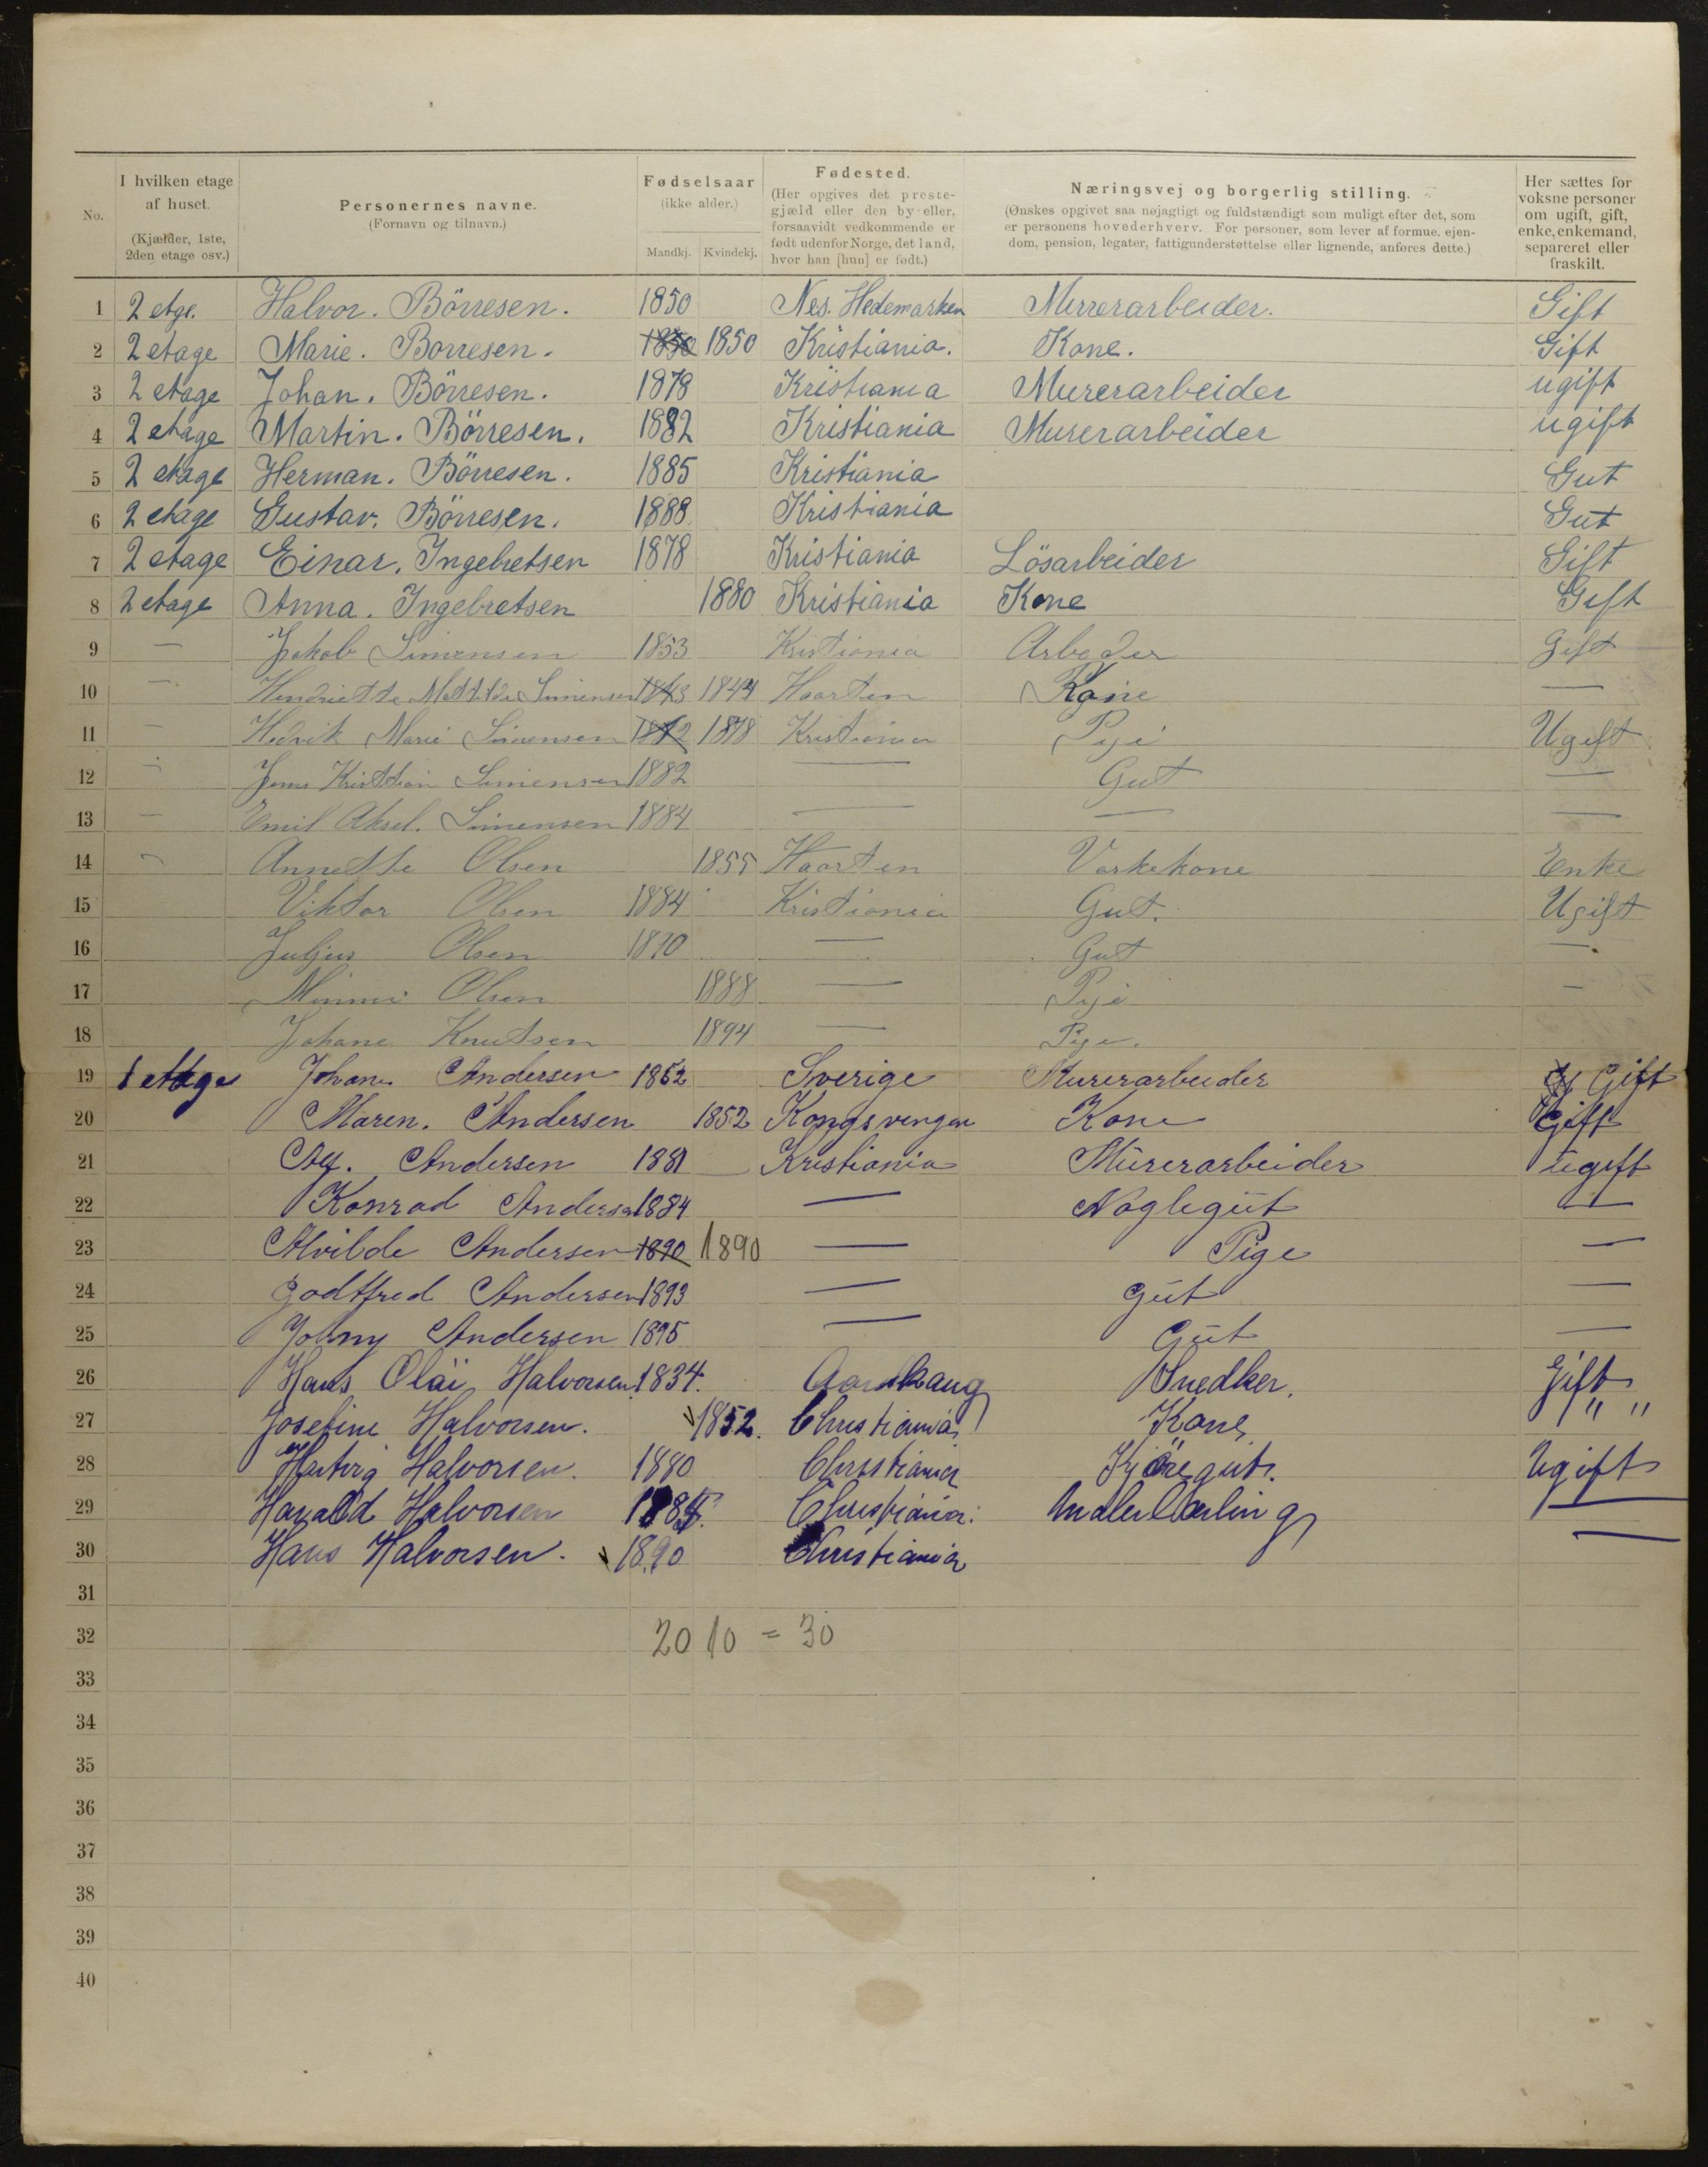 No.
I hvilken etage af huset. (Kjælder, 1ste, 2den etage osv.)
Personernes navne. (Fornavn og tilnavn.)
Fødselsaar (ikke alder.)
Mandkj. Kvindekj.
Fødested. (Her opgives det prestegjæld eller den by eller, forsaavidt vedkommende er født udenfor Norge, det land, hvor han [hun] er født.)
Næringsvej og borgerlig stilling. (Ønskes opgivet saa nøjagtigt og fuldstændigt som muligt efter det, som er personens hovederhverv. For personer, som lever af formue, ejendom, pension, legater, fattigunderstøttelse eller lignende, anføres dette.)
Her sættes for voksne personer om ugift, gift, enke, enkemand, separeret eller fraskilt.
1 2 etge. Halvor. Börresen. 1850 Nes. Hedemarken Murrerarbeider. Gift
2 2 etage Marie. Borresen. 1850 1850 Kristiania. Kone. Gift
3 2 etage Johan. Börresen. 1878 Kristiania Murerarbeider ugift
4 2 etage Martin. Börresen. 1882 Kristiania Murerarbeider ugift
5 2 etage Herman. Börresen. 1885 Kristiania Gut
6 2 etage Gustav. Börresen. 1888 Kristiania Gut
7 2 etage Einar. Ingebretsen 1878 Kristiania Lösarbeider Gift
8 2 etage Anna. Ingebretsen 1880 Kristiania Kone Gift
9 — Jakob Simensen 1853 Kristiania Arbeder Gift
10 — Hendriette Mathilde Simensen 1843 1844 Haarten Kone —
11 — Hedvik Marie Simensen 1878 Kristiania Pije Ugift
12 — Jens Kristian Simensen 1882 — Gut —
13 — Emil Aksel. Simensen 1884 — — —
14 — Annette Olsen 1855 Haarten Vaskekone Enke
15 Viktor Olsen 1884 Kristiania Gut. Ugift
16 Juljus Olsen 1890 — Gut —
17 Minnie Olsen 1888 — Pije —
18 Johane Knutsen 1894 — Pije.
19 1 etage Johan Andersen 1852 Sverige Murerarbeider Gift
20 Maren. Andersen 1852 Kongsvinger Kone Gift
21 Andersen 1881 — Kristiania Mürerarbeider ugift
22 Konrad Andersen 1884 — Noglegüt —
23 Alvilde Andersen 1890 1890 — Pige —
24 Godtfred Andersen 1893 — Güt —
25 Johny Andersen 1895 — Güt —
26 Hans Olai Halvorsen 1834. Snedker. Gift
27 Josefine Halvorsen. 1852. Christiania Kone " "
28 Hartvig Halvorsen. 1880 Christiania Kjöregut. Ugift
29 Harald Halvorsen Christiania. —
30 Hans Halvorsen. 1890 Christiania —
31
32 20 10 = 30
33
34
35
36
37
38
39
40